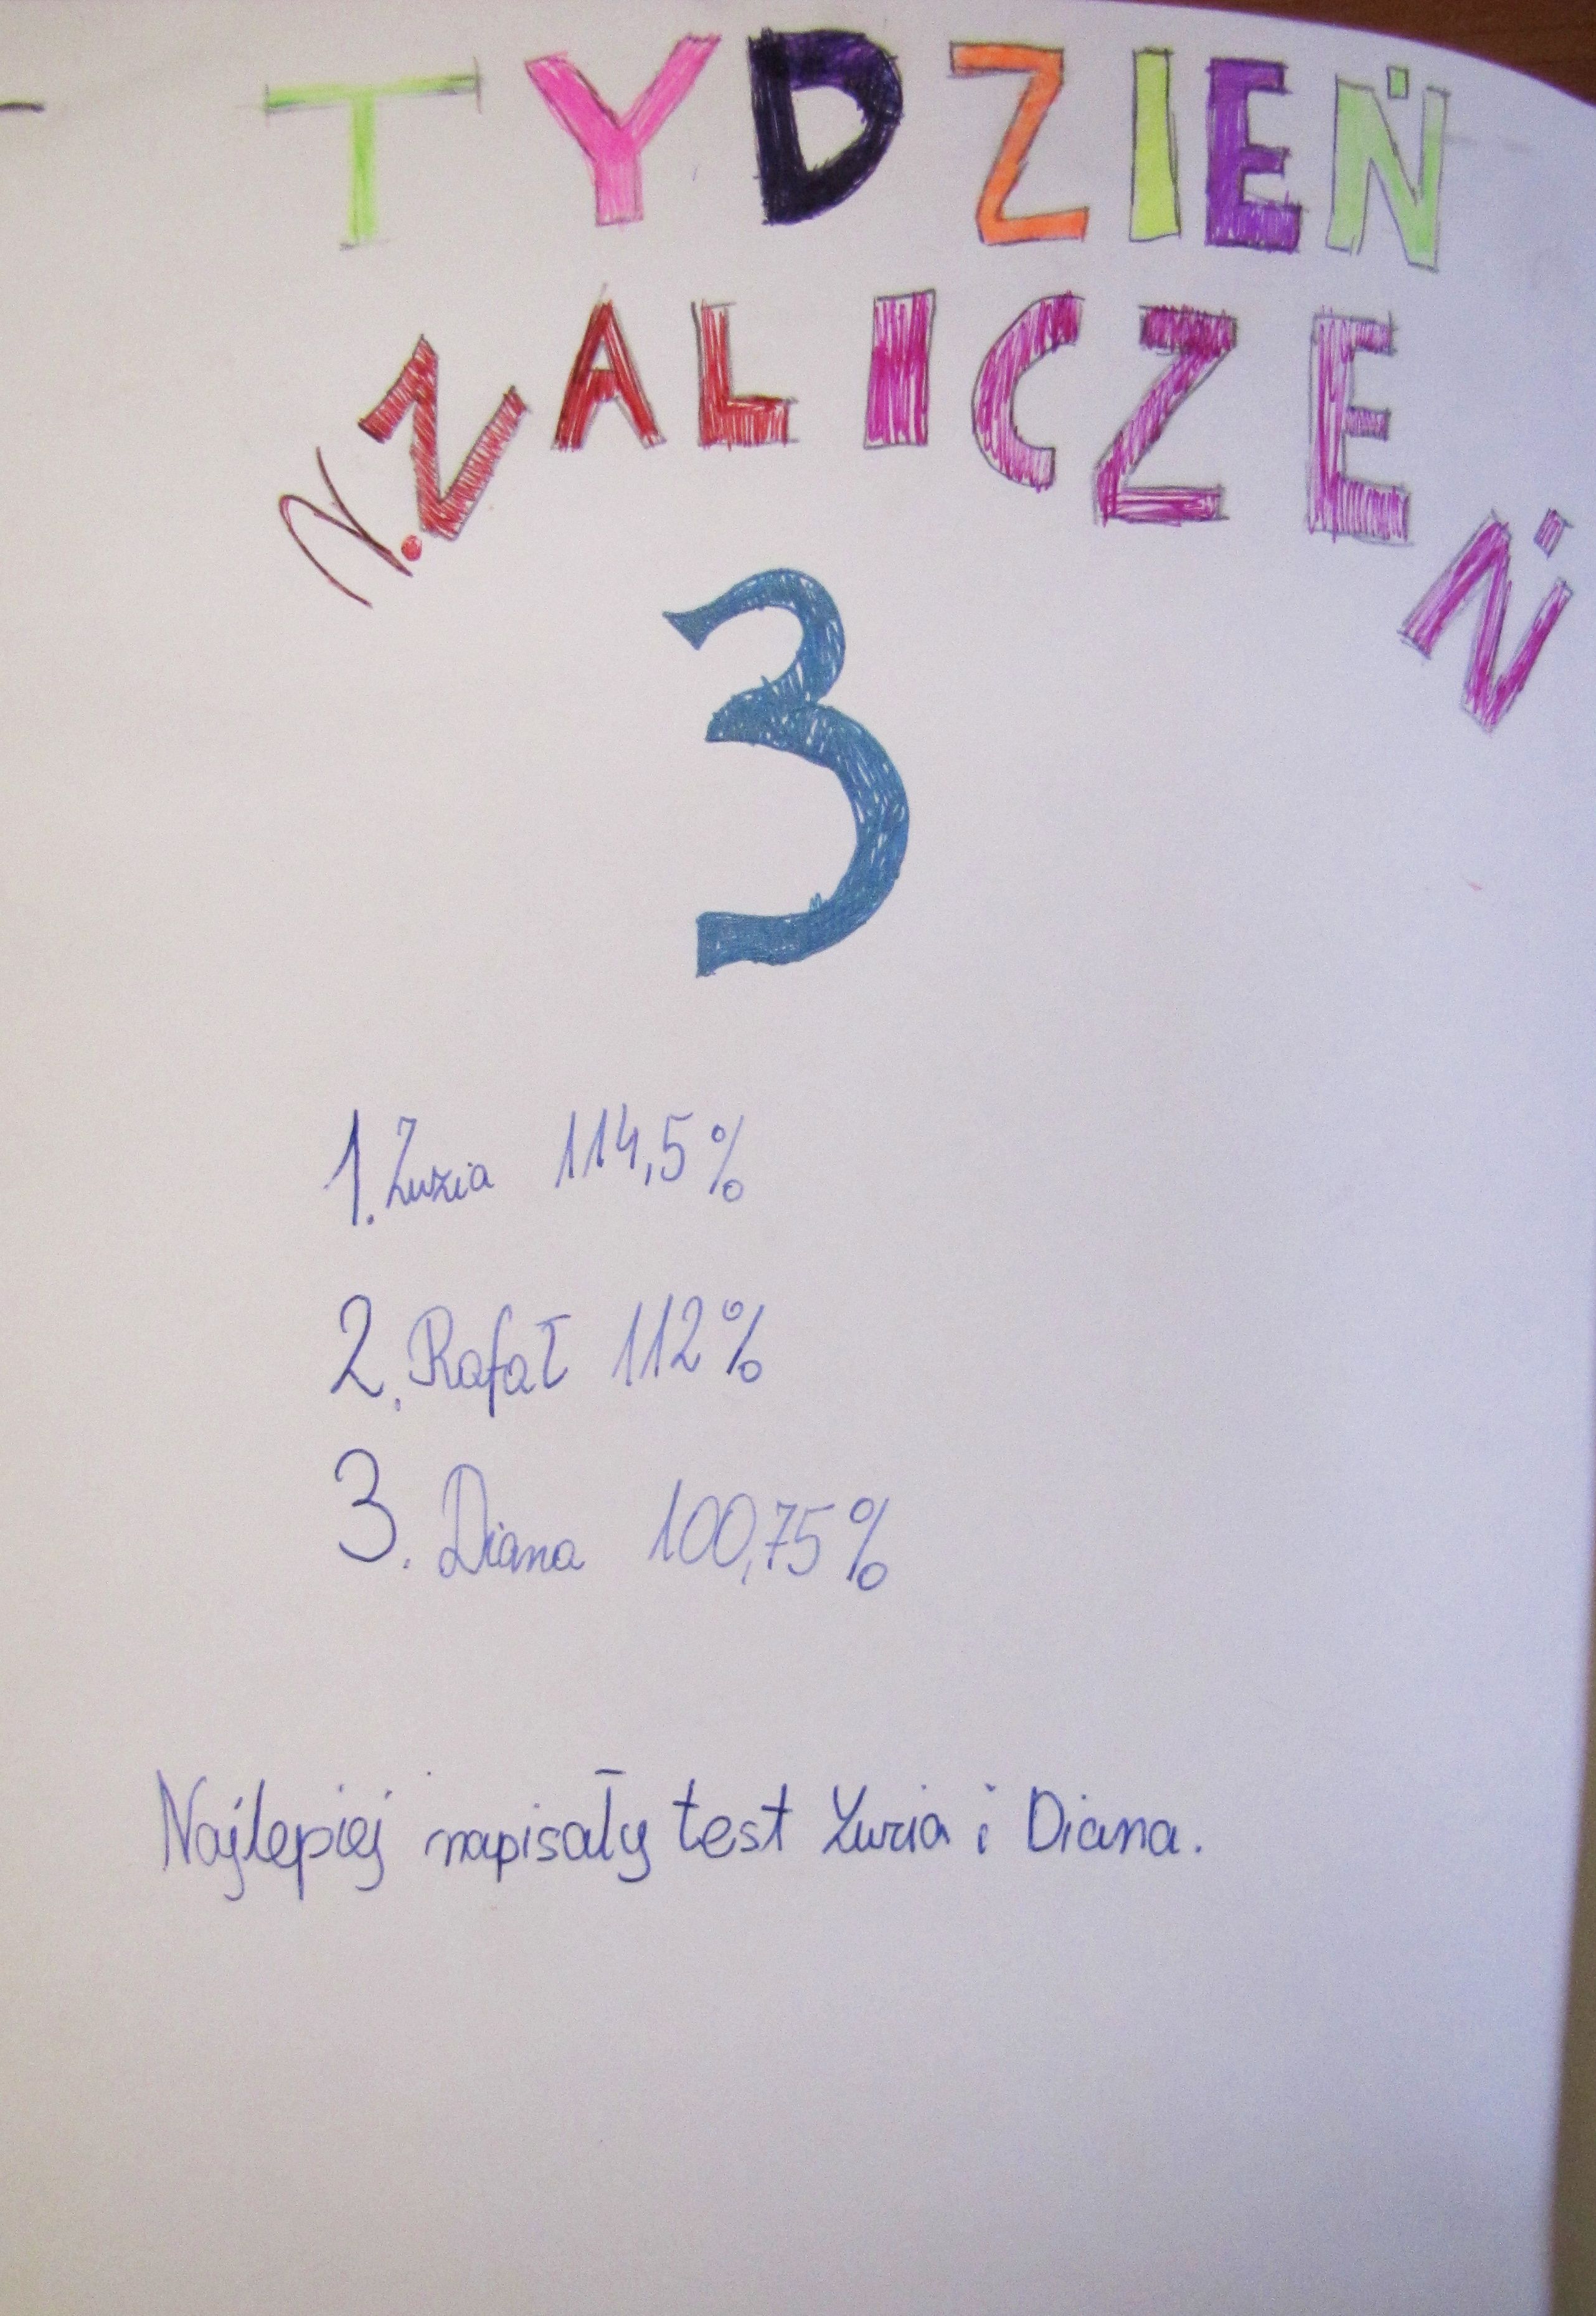 TYDZIEŃ
N.ZALICZEŃ
3
1. Zuzia 114,5%
2. Rafał 112%
3. Diana 100,75%
Najlepiej napisały test Zuzia i Diana.